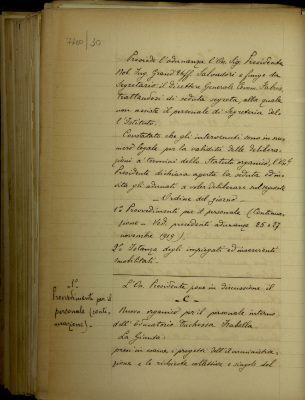 7410/30
Presiede l'adunanza l'On. Sig. Presidente
Nob. Ing. Grand'Uff. Salvadori e funge da
Segretario il Direttore Generale
trattandosi di seduta segreta alla quale
non assiste il personale di Segreteria del-
l'Istituto.
Constatato che gli intervenuti sono in nu-
mero legale per la validità delle delibera-
zioni a termini dello Statuto organico, l'On.
Presidente dichiara aperta la seduta ed in-
vita gli adunati a voler deliberare sul seguente
Ordine del giorno
1° Provvedimenti per il personale (Continua-
zione - Ved. precedenti adunanze 25 e 27
novembre 1919).
2° Istanza degli impiegati ed inservienti
smobilitati.
1°
Provvedimenti per il
personale (conti-
nuazione).
L'On. Presidente pone in discussione il
- C -
Nuovo organico per il personale interno
dell'
La Giunta:
presi in esame i progetti dell'Amministra-
zione e le richieste collettive e singole del